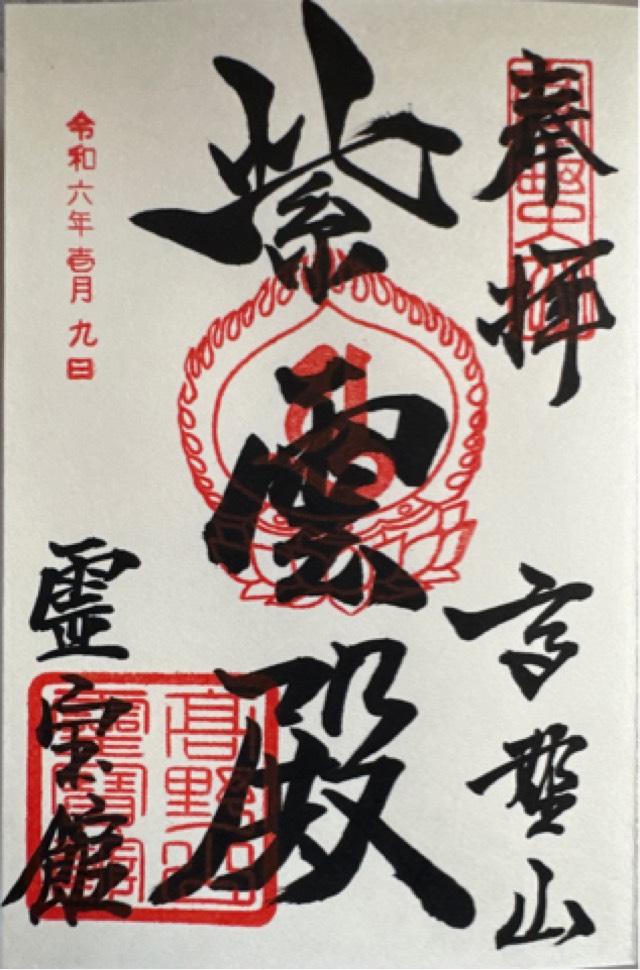 奉拝
高野山
紫雲殿
令和六年壱月九日
霊宝館
高野山
霊寶館